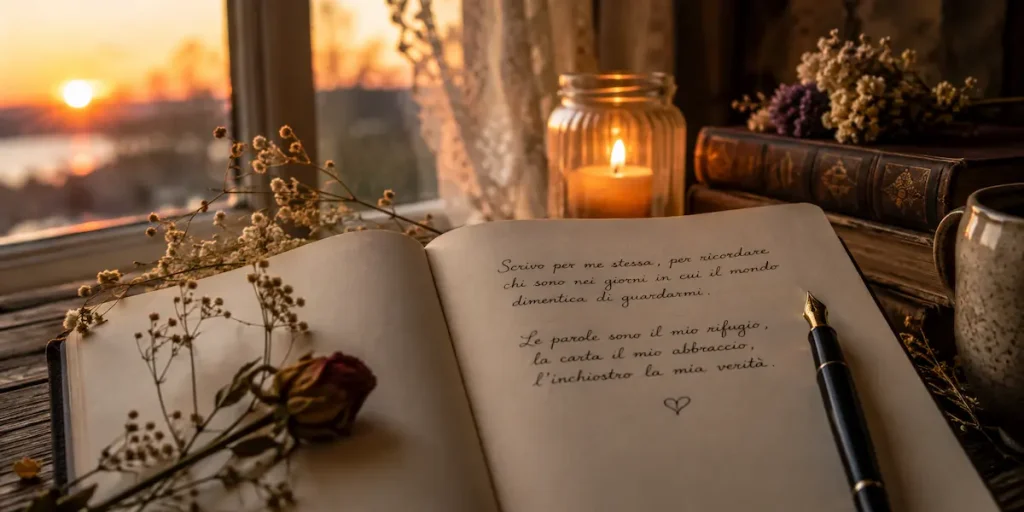 Scrivo per me stessa, per ricordare
chi sono nei giorni in cui il mondo
dimentica di guardarmi.
Le parole sono il mio rifugio,
la carta il mio abbraccio,
l'inchiostro la mia verità.